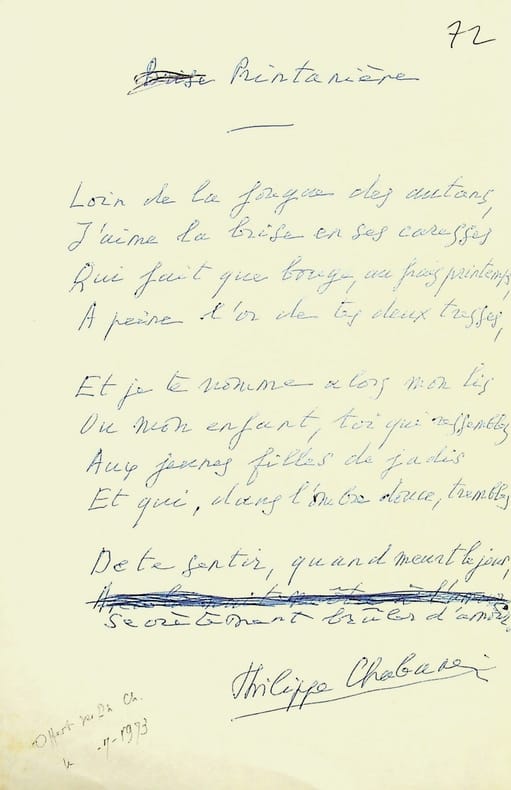 72
Brise Printanière
Loin de la fougue des autans,
J'aime la brise en ses caresses
Qui fait que bouge, au frais printemps,
A peine l'or de tes deux tresses,
Et je te nomme alors mon lis
Ou mon enfant, toi qui ressembles
Aux jeunes filles de jadis
Et qui, dans l'ombre douce, trembles
De te sentir, quand meurt le jour,
Secrètement brûler d'amour.
Philippe Chabaneix
Offert par Ph Ch.
le -7-1973